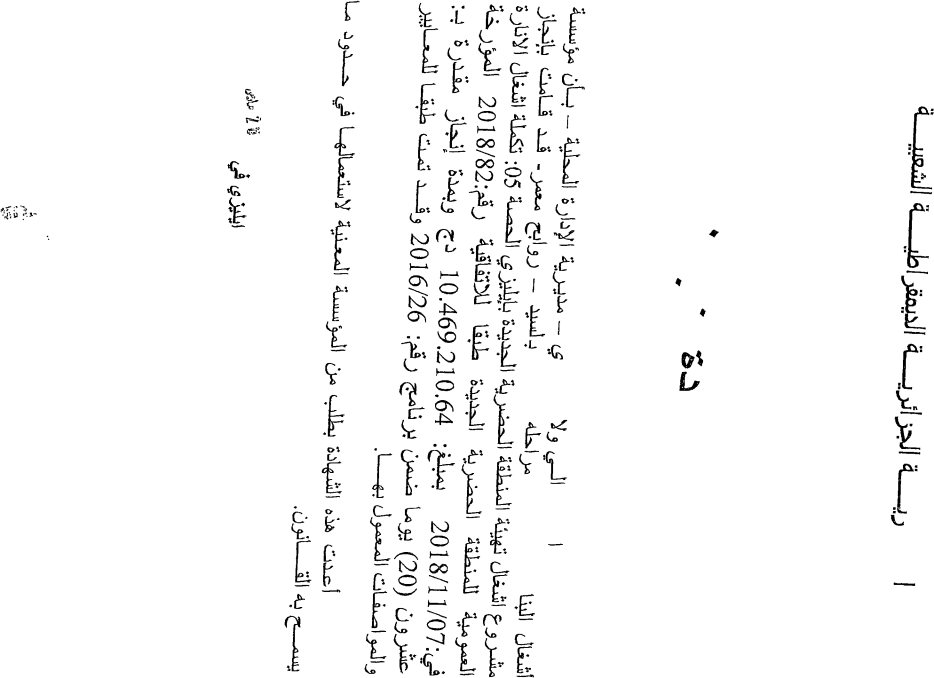 ريـــة الجزائريـــة الديمقراطيـــة الشعبيـــة
دة
الـي ولا ي – مديرية الإدارة المحلية – بـأن مؤسسة
أشغال البنا مراحله بـلسيد – روابح معمر- قد قـامت بإنجاز
مشروع اشغال تهيئة المنطقة الحضرية الجديدة بإيليزي الحصة 05: تكملة اشغال الانارة
العمومية للمنطقة الحضرية الجديدة طبقا للاتفاقية رقم:2018/82 المؤرخة
في:2018/11/07 بمبلغ: 10.469.210.64 دج وبمدة إنجاز مقدرة بـ:
عشرون (20) يوما ضمن برنامج رقم: 2016/26 وقـد تمت طبقـا للمعـايير
والمواصفـات المعمول بهـــا.
أعدت هذه الشهادة بطلب من المؤسسة المعنية لاستعمالهـا في حـــدود مـا
يسمـــح به القـــانون.
ايليزي في